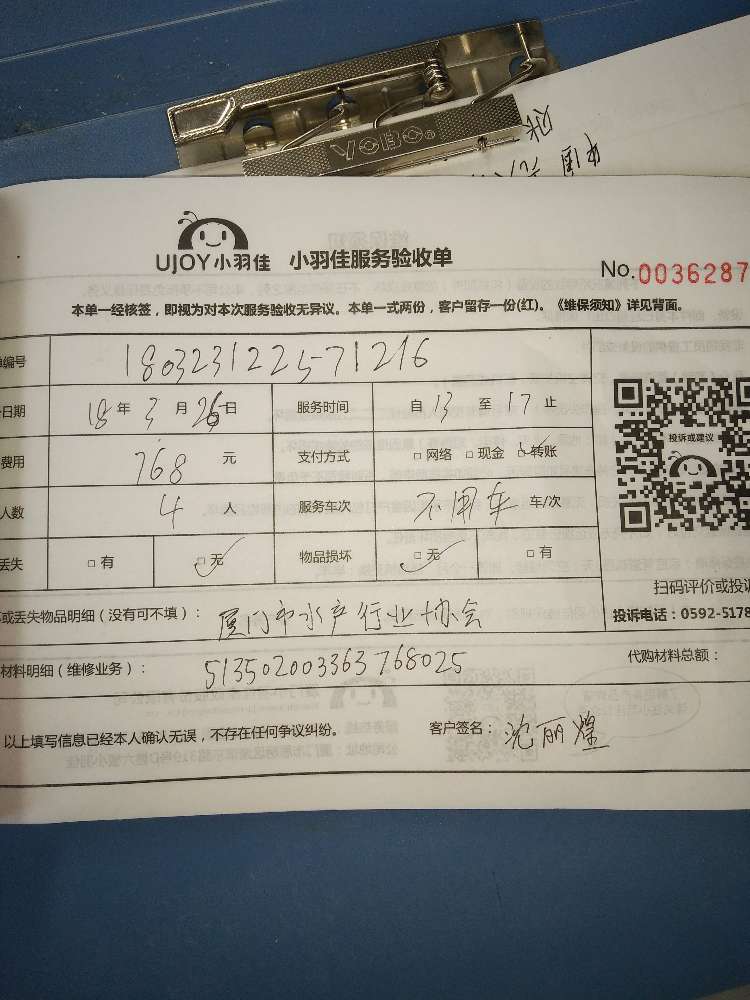 YOBO
UJOY小羽佳 小羽佳服务验收单
No.0036287
本单一经核签，即视为对本次服务验收无异议。本单一式两份，客户留存一份(红)。《维保须知》详见背面。
编号 180323122571216
日期 18年3月26日 服务时间 自13至17止
费用 768元 支付方式 □网络 □现金 □转账
投诉或建议
人数 4人 服务车次 不用车 车/次
丢失 □有 □无 物品损坏 □无 □有
扫码评价或投诉
或丢失物品明细（没有可不填）： 厦门市水产行业协会
投诉电话：0592-5178
材料明细（维修业务）： 513502003363768025 代购材料总额：
以上填写信息已经本人确认无误，不存在任何争议纠纷。 客户签名： 沈丽煌